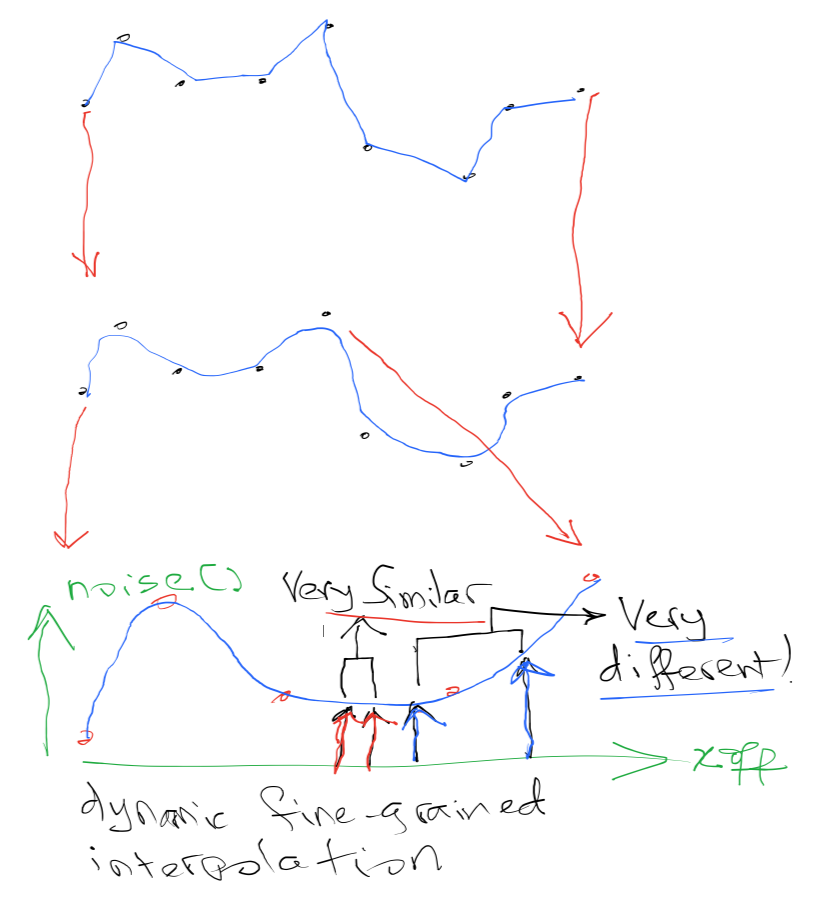 noise()
Very Similar
Very
different!
xoff
dynamic fine-grained
interpolation